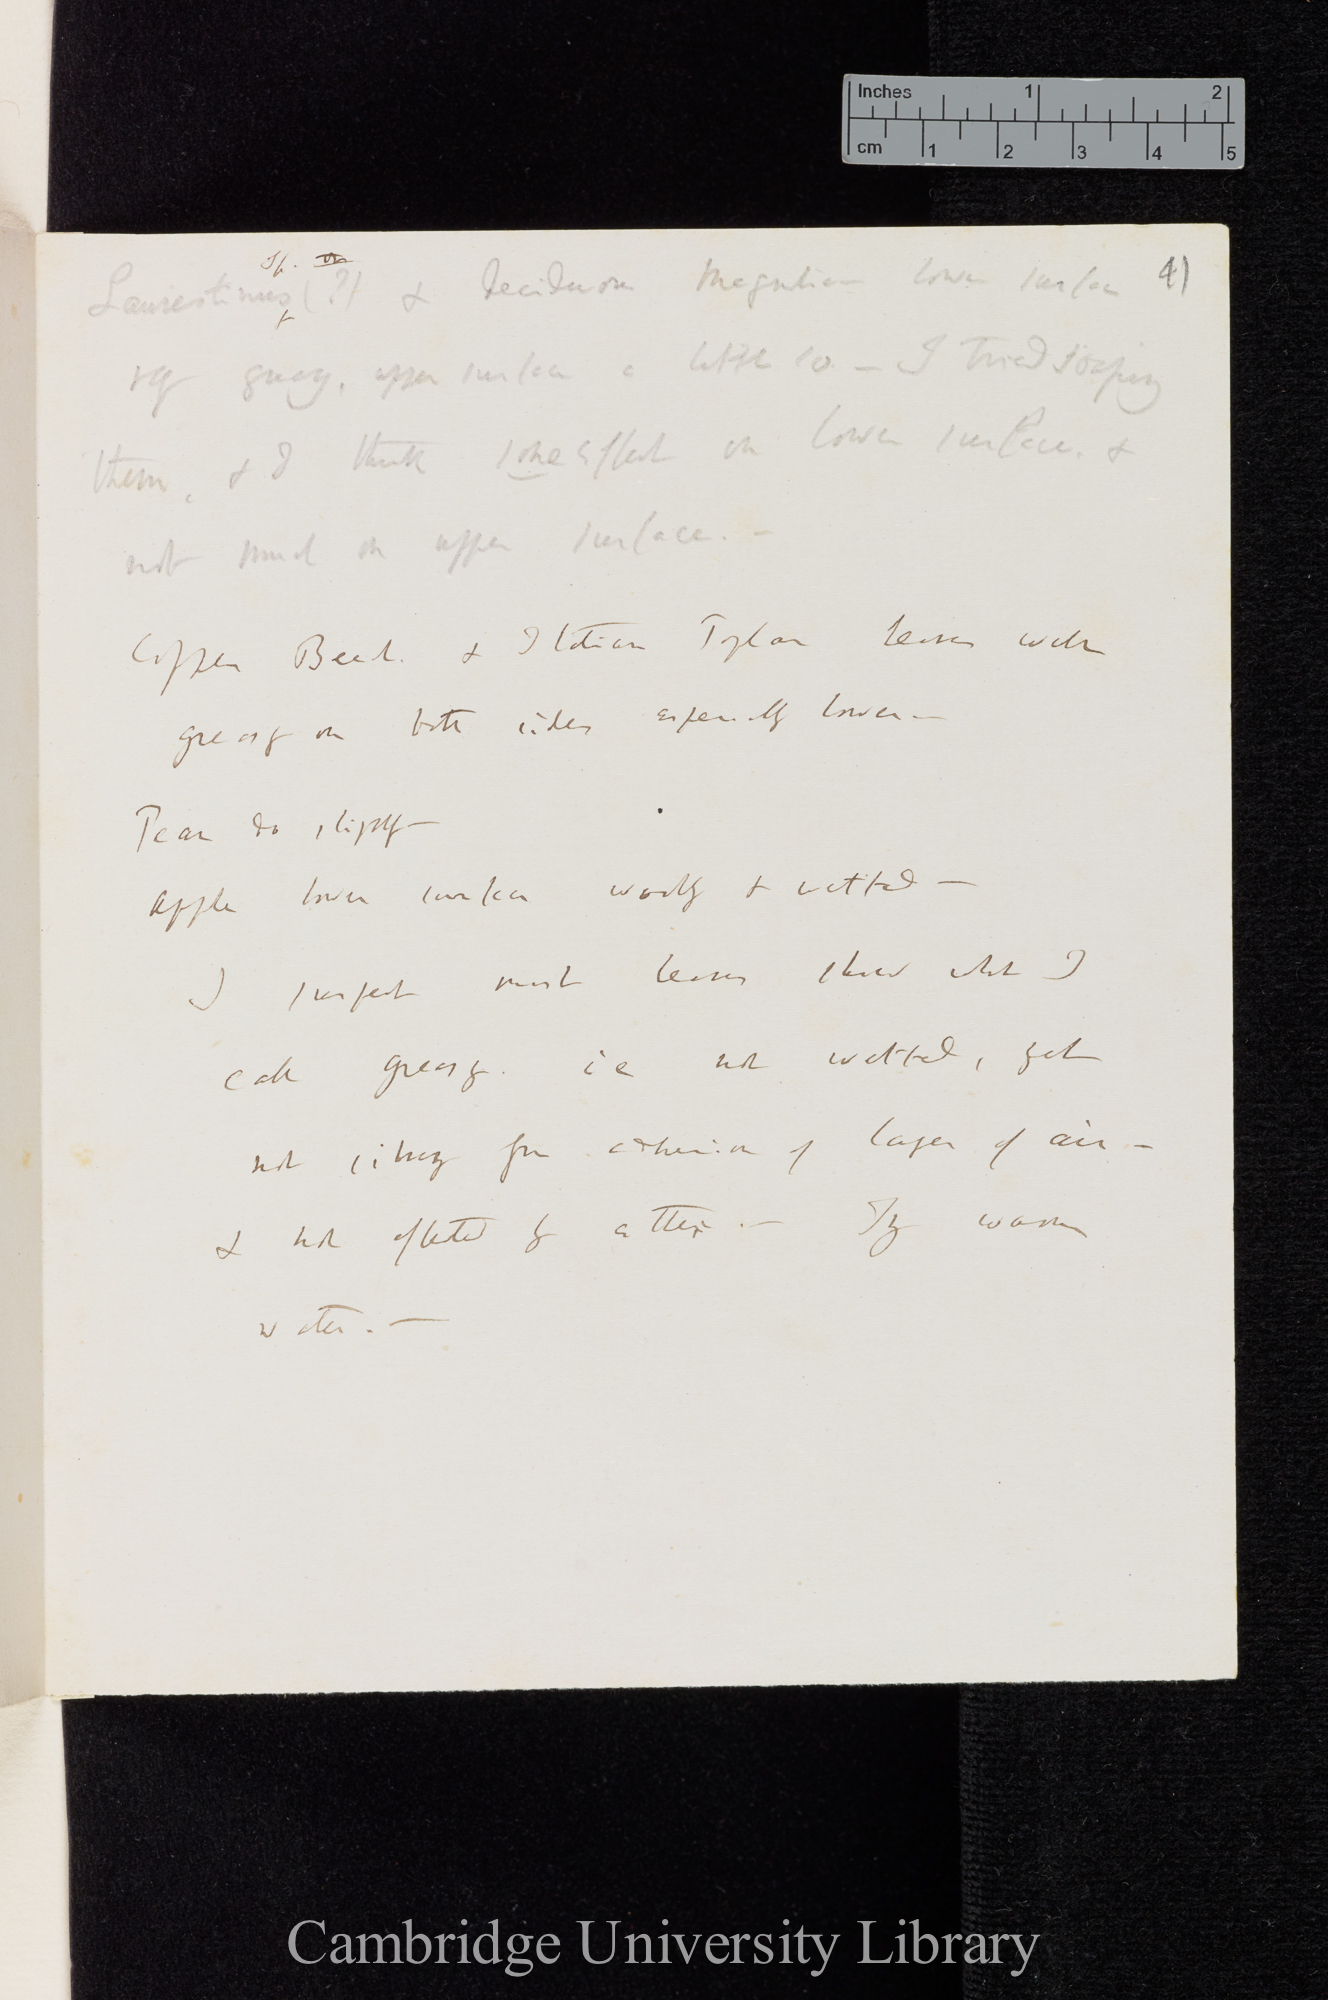 Inches 1 2
cm 1 2 3 4 5
41
Sp.
Laurestinus (?) & deciduous Magnolia lower surface
very greasy, upper surface a little so. — I tried soaping
them, & I think some effect on lower surface, &
not much on upper surface. —
Copper Beech. & Italian Poplar leaves with
greasy on both sides especially lower —
Pear do slightly —
Apple lower surface woolly & wetted —
I suspect most leaves show what I
call greasy. ie not wetted, yet
not silvery from adhesion of layer of air —
& not affected by . — Try warm
water. —
Cambridge University Library